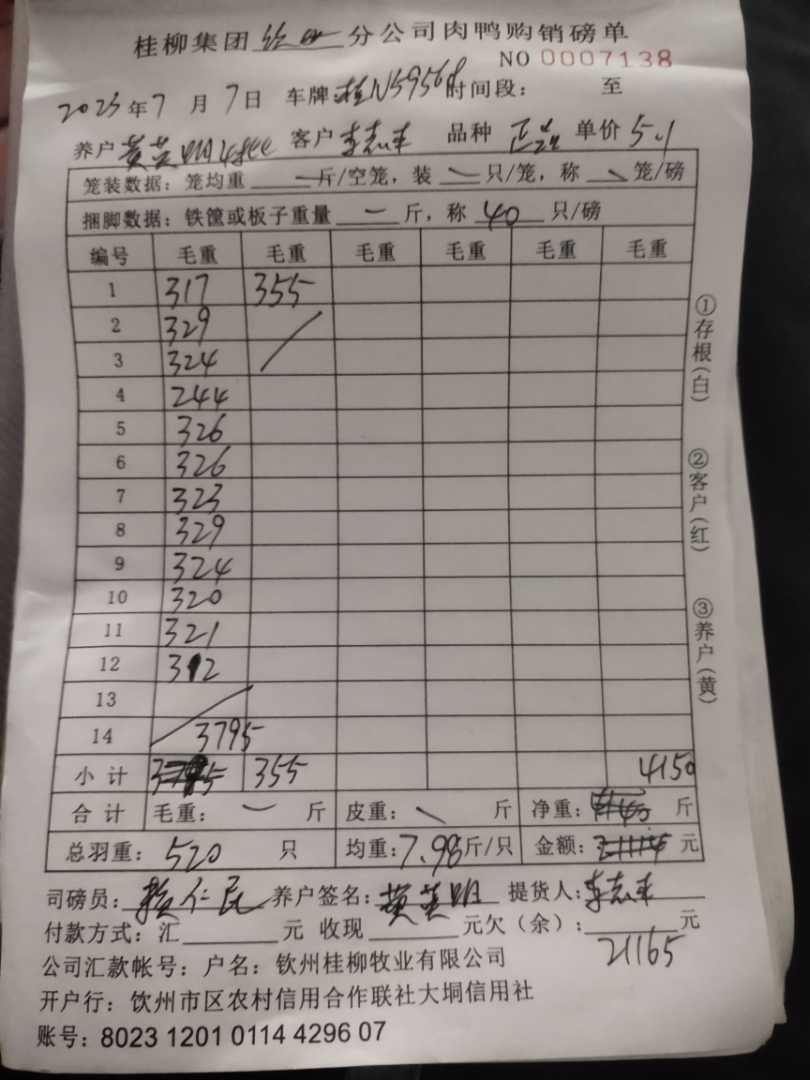 桂柳集团 分公司肉鸭购销磅单
NO 0007138
2023年7月7日 车牌 桂N5956 时间段： 至
养户 黄英明 客户 李志丰 品种 正品 单价 5.1
笼装数据：笼均重 — 斤/空笼，装 — 只/笼，称 — 笼/磅
捆脚数据：铁筐或板子重量 — 斤，称 40 只/磅
编号 毛重 毛重 毛重 毛重 毛重 毛重
1 317 355
2 329
3 324
4 244
5 326
6 326
7 323
8 329
9 324
10 320
11 321
12 312
13
14 3795
小计 3795 355 4150
合计 毛重： — 斤 皮重： — 斤 净重： 斤
总羽重： 520 只 均重：7.98斤/只 金额： 元
司磅员： 赖仁民 养户签名：黄英明 提货人：李志丰
付款方式：汇 元 收现 元欠（余）： 元
21165
公司汇款帐号：户名：钦州桂柳牧业有限公司
开户行：钦州市区农村信用合作联社大垌信用社
账号：8023 1201 0114 4296 07
①存根（白）
②客户（红）
③养户（黄）